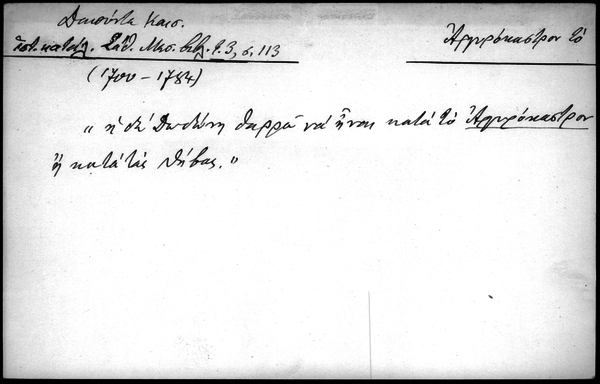 Δαπόντε Καισ.
Ἀργυρόκαστρον τὸ
ἱστ. κατάλ. Σάθ. Μεσ. Βιβλ. τ. 3, σ. 113
(1700 - 1784)
" ἡ δὲ Δωδώνη θαρρῶ νὰ ἦναι κατὰ τὸ Ἀργυρόκαστρον
ἢ κατὰ τὰς Θήβας. "